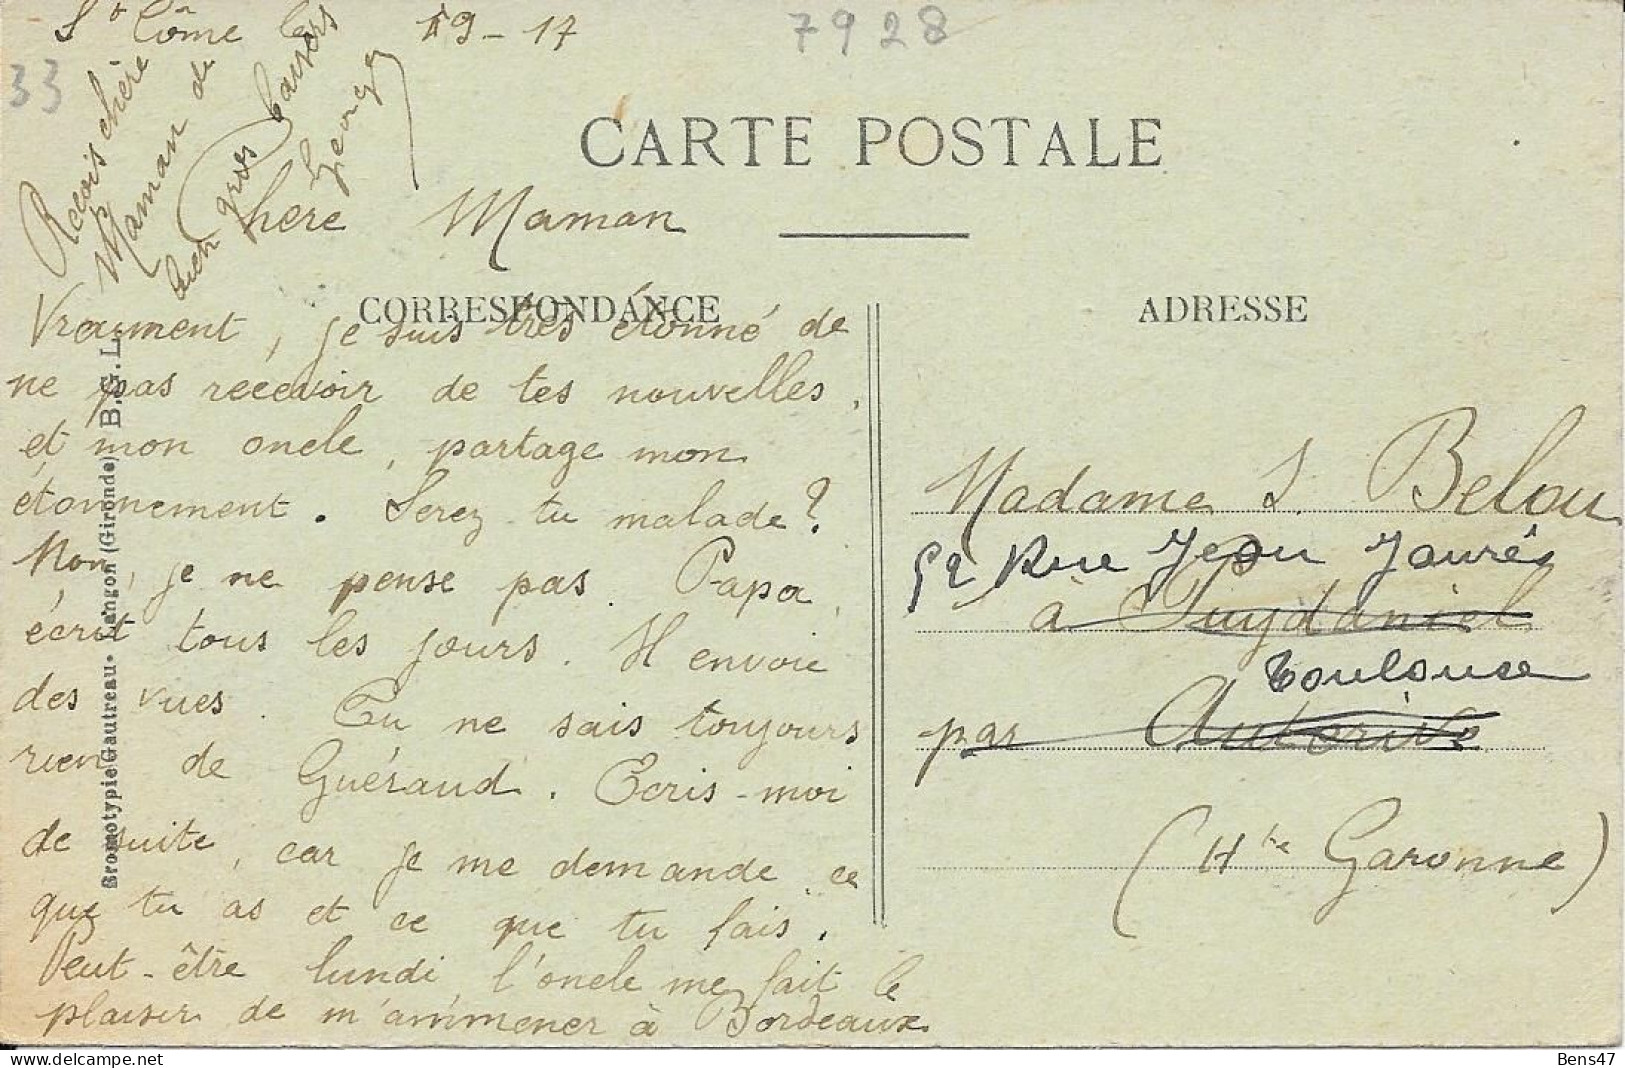 St Côme le 19-17
7928
33
Recois chère
Maman de
bien gros baisers
George
CARTE POSTALE
Chere Maman
CORRESPONDANCE
ADRESSE
Vraiment, je suis très étonné de
ne pas recevoir de tes nouvelles,
et mon oncle, partage mon
étonnement. Serez-tu malade?
Non, je ne pense pas. Papa
écrit tous les jours. Il envoie
des vues. Tu ne sais toujours
rien de Guéraud. Ecris-moi
de suite, car je me demande ce
que tu as et ce que tu fais.
Peut-être lundi l'oncle me fait le
plaisir de m'ammener à Bordeaux
Bromotypie Gautreau - Langon (Gironde) B.G.L.
Madame S. Belou
52 Rue Jean Jaurés
a Puydaniel
Toulouse
par Auterive
(Hte Garonne)
Bens47